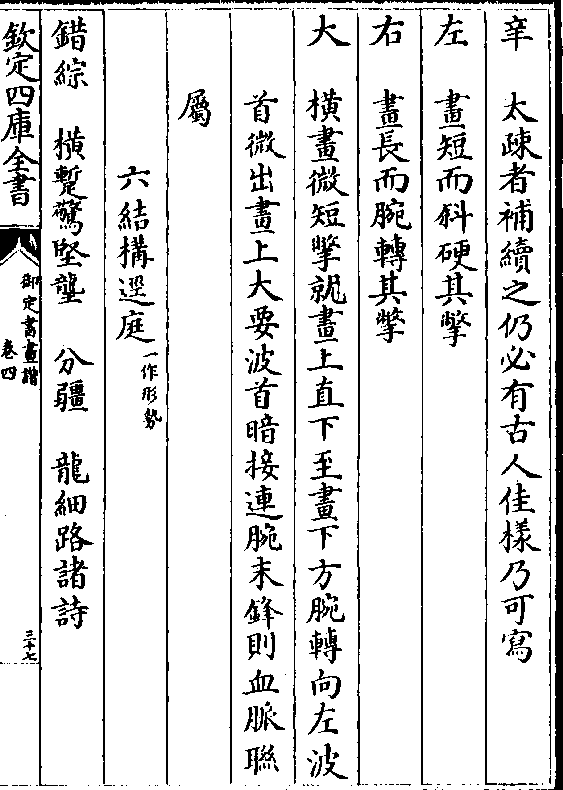 辛　太疎者補續之仍必有古人佳樣乃可寫
左　畫短而斜硬其撆
右　畫長而腕轉其撆
大　橫畫微短撆就畫上直下至畫下方腕轉向左波
首微出畫上大要波首暗接連腕末鋒則血脈聯
屬
六結構逕庭一作形勢
錯綜　橫蹔驚堅壟　分疆　龍細路諸詩
欽定四庫全書
御定書畫譜
卷四
三十七